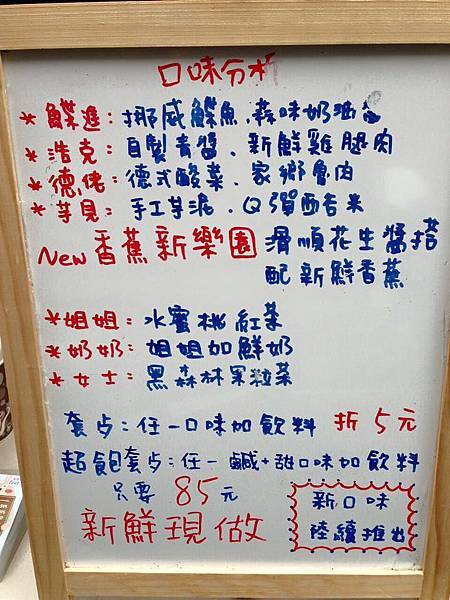 口味分析
*鰈進:挪威鰈魚、蒜味奶油
*浩克:自製青醬、新鮮雞腿肉
*德佬:德式酸菜、家鄉魯肉
*芋見:手工芋泥、Q彈西谷米
New香蕉新樂園 滑順花生醬搭
配新鮮香蕉
*姐姐:水蜜桃紅茶
*奶奶:姐姐加鮮奶
*女士:黑森林果粒茶
套歺:任一口味加飲料 折5元
超飽套歺:任一鹹+甜口味加飲料
只要 85元
新鮮現做
新口味
陸續推出